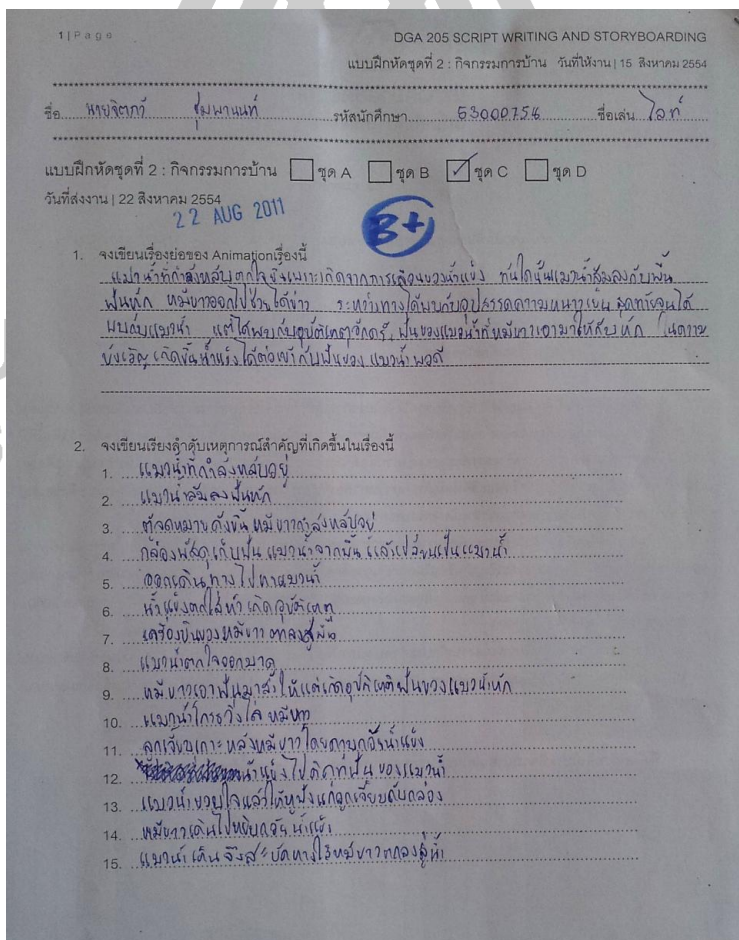 1 | P a g e
DGA 205 SCRIPT WRITING AND STORYBOARDING
แบบฝึกหัดชุดที่ 2 : กิจกรรมการบ้าน วันที่ให้งาน | 15 สิงหาคม 2554
ชื่อ นายจิตภวั ชุ่มพานนท์ รหัสนักศึกษา 53000754 ชื่อเล่น ไอซ์
แบบฝึกหัดชุดที่ 2 : กิจกรรมการบ้าน ชุด A ชุด B ชุด C ชุด D
วันที่ส่งงาน | 22 สิงหาคม 2554
22 AUG 2011
B+
1. จงเขียนเรื่องย่อของ Animationเรื่องนี้
แมวน้ำที่กำลังหลับตกใจขึ้นเพราะเกิดจากการเลื่อนของน้ำแข็ง ทันใดนั้นแมวน้ำล้มลงกับพื้น
ฟันหัก หมีขาวออกไปช่วย ระหว่างทางได้พบกับอุปสรรคความหนาวเย็น สุดท้ายจนได้
พบกับแมวน้ำ แต่ได้พบกับอุบัติเหตุ ฟันของแมวน้ำที่หมีขาวเอามาให้ดันหัก ในความ
บังเอิญเกิดขึ้นน้ำแข็งได้ต่อเข้ากับฟันของ แมวน้ำพอดี
2. จงเขียนเรียงลำดับเหตุการณ์สำคัญที่เกิดขึ้นในเรื่องนี้
1. แมวน้ำที่กำลังหลับอยู่
2. แมวน้ำล้มลงฟันหัก
3. ดังขึ้น หมีขาวกำลังหลับอยู่
4. กล่องพัสดุเก็บฟัน แมวน้ำจากพื้น แล้วเปลี่ยนเป็นแมวน้ำ
5. ออกเดินทางไปหาแมวน้ำ
6. น้ำแข็งตกใส่ เกิดอุบัติเหตุ
7. เครื่องบินของหมีขาว ตกลงสู่พื้น
8. แมวน้ำตกใจออกมาดู
9. หมีขาวเอาฟันมาส่งให้แต่เกิดอุบัติเหตุฟันของแมวน้ำหัก
10. แมวน้ำโกรธวิ่งไล่ หมีขาว
11. ลูกเจี๊ยบเกาะหลังหมีขาวโดยคาบน้ำแข็ง
12. น้ำแข็งไปติดที่ฟันของแมวน้ำ
13. แมวน้ำชอบใจแล้วให้แก่ลูกเจี๊ยบกับกล่อง
14. หมีขาวเดินไปหยิบ น้ำแข็ง
15. แมวน้ำเห็นจึงสะบัดหางใส่หมีขาวตกลงสู่น้ำ